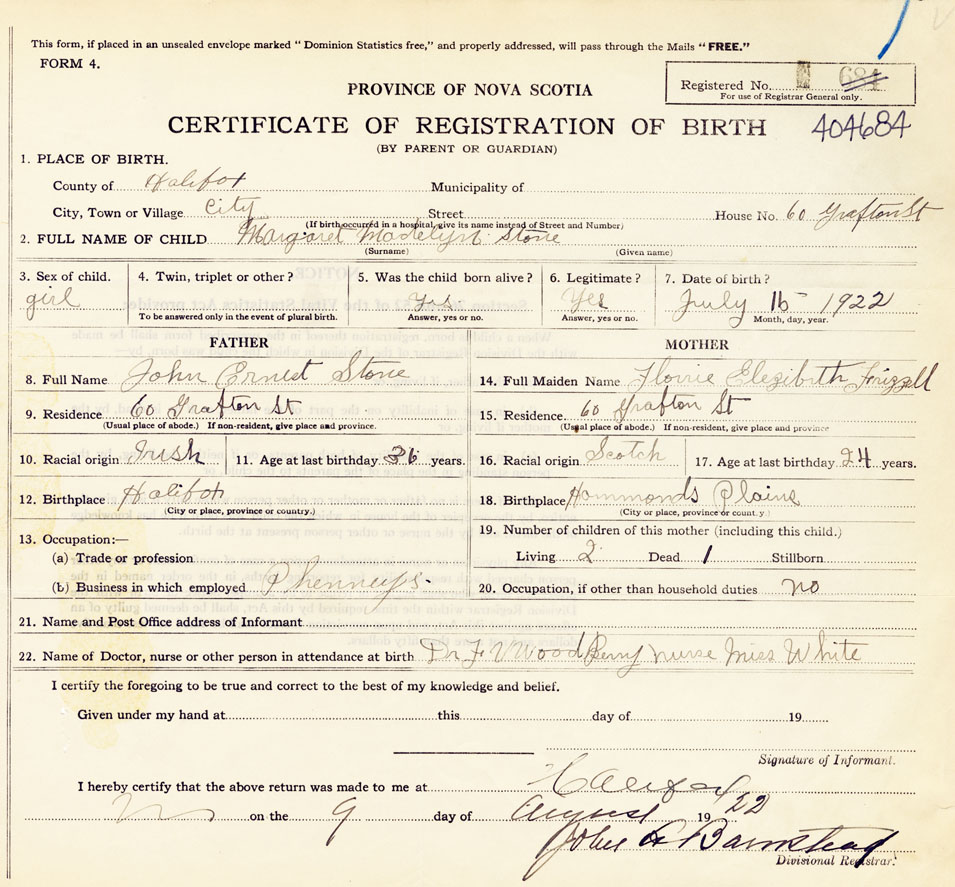 This form, if placed in an unsealed envelope marked "Dominion Statistics free," and properly addressed, will pass through the Mails "FREE."
FORM 4.
Registered No. 684
For use of Registrar General only.
PROVINCE OF NOVA SCOTIA
CERTIFICATE OF REGISTRATION OF BIRTH 404684
(BY PARENT OR GUARDIAN)
1. PLACE OF BIRTH.
County of Halifax Municipality of
City, Town or Village City Street House No. 60 Grafton St
(If birth occurred in a hospital, give its name instead of Street and Number)
2. FULL NAME OF CHILD Margaret Madelyn Stone
(Surname) (Given name)
3. Sex of child. 4. Twin, triplet or other? 5. Was the child born alive? 6. Legitimate? 7. Date of birth?
girl Yes Yes July 16 1922
To be answered only in the event of plural birth. Answer, yes or no. Answer, yes or no. Month, day, year.
FATHER MOTHER
8. Full Name John Ernest Stone 14. Full Maiden Name Florrie Elezibith Frizzell
9. Residence 60 Grafton St 15. Residence. 60 Grafton St
(Usual place of abode.) If non-resident, give place and province. (Usual place of abode.) If non-resident, give place and province
10. Racial origin Irish 11. Age at last birthday 36 years. 16. Racial origin Scotch 17. Age at last birthday 24 years.
12. Birthplace Halifax 18. Birthplace Hammonds Plains
(City or place, province or country.) (City or place, province or country.)
13. Occupation:— 19. Number of children of this mother (including this child.)
(a) Trade or profession Living 2 Dead 1 Stillborn
(b) Business in which employed 20. Occupation, if other than household duties no
21. Name and Post Office address of Informant
22. Name of Doctor, nurse or other person in attendance at birth Dr F V Woodberry nurse Miss White
I certify the foregoing to be true and correct to the best of my knowledge and belief.
Given under my hand at this day of 19
Signature of Informant.
I hereby certify that the above return was made to me at Halifax
on the 9 day of August 1922
John A Barnstead
Divisional Registrar.